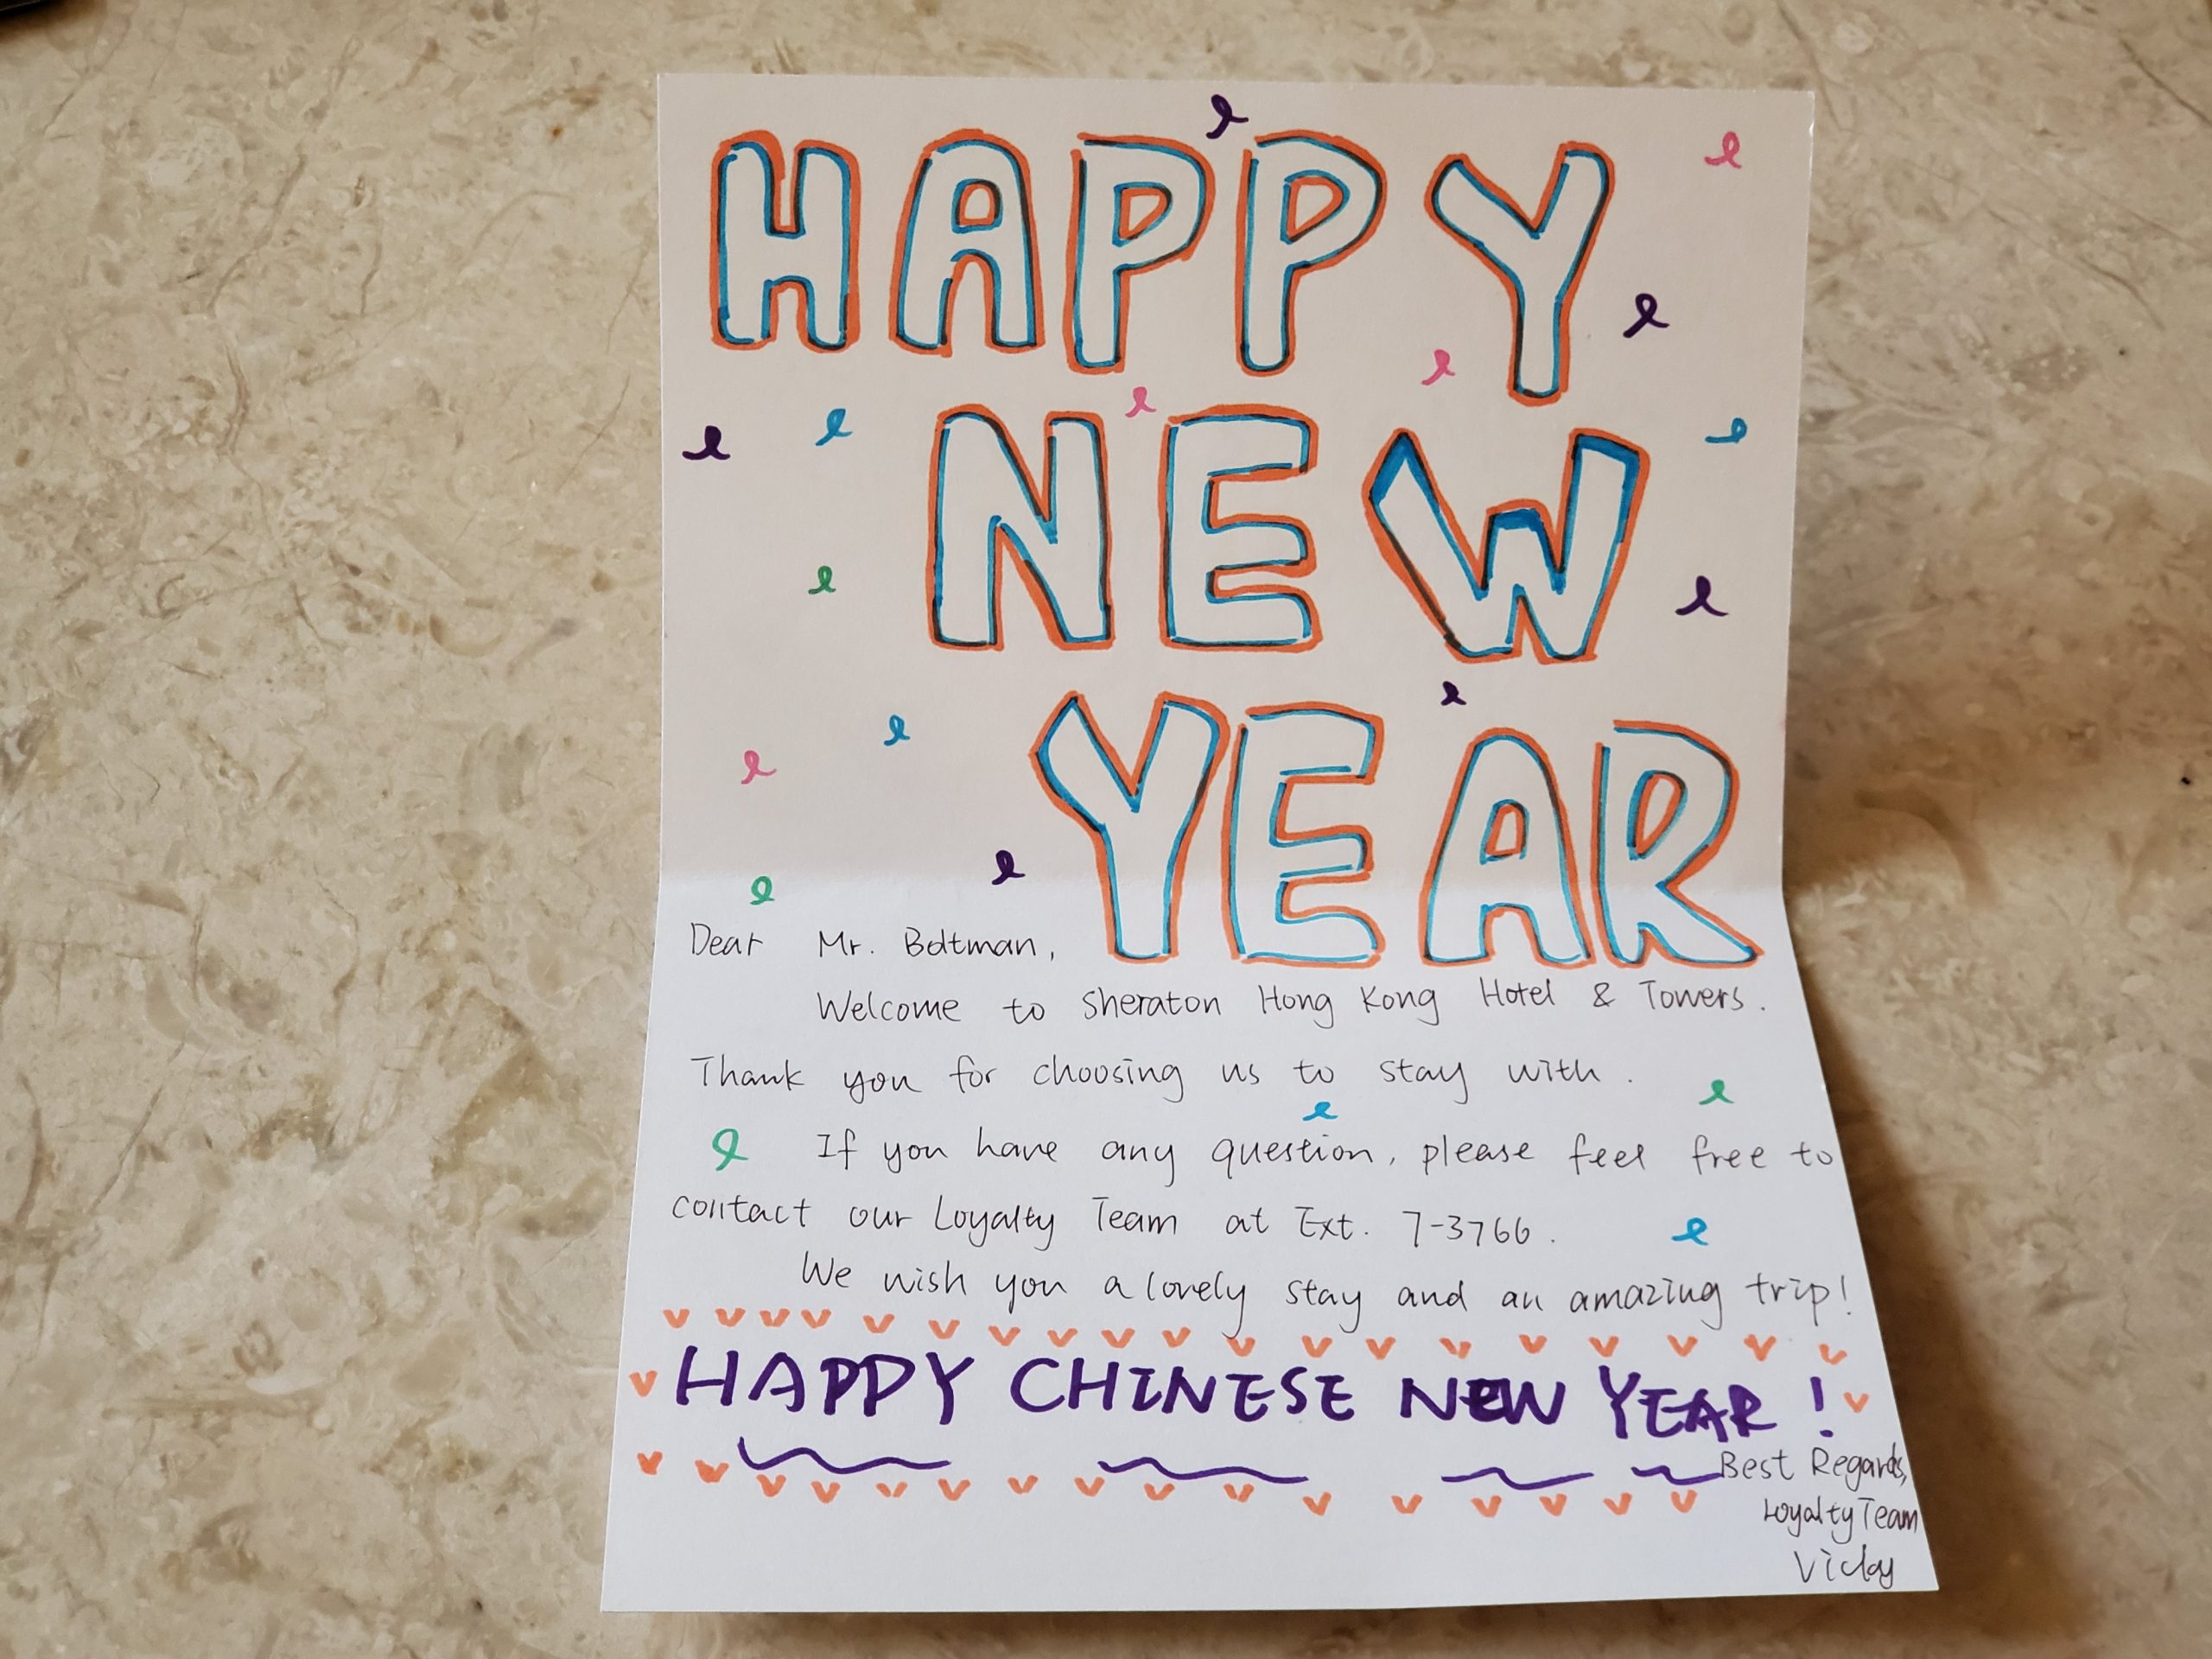 HAPPY
NEW
YEAR
Dear Mr. Boltman,
Welcome to Sheraton Hong Kong Hotel & Towers.
Thank you for choosing us to stay with.
If you have any question, please feel free to
contact our Loyalty Team at Ext. 7-3766.
We wish you a lovely stay and an amazing trip!
HAPPY CHINESE NEW YEAR!
Best Regards,
Loyalty Team
Vicky